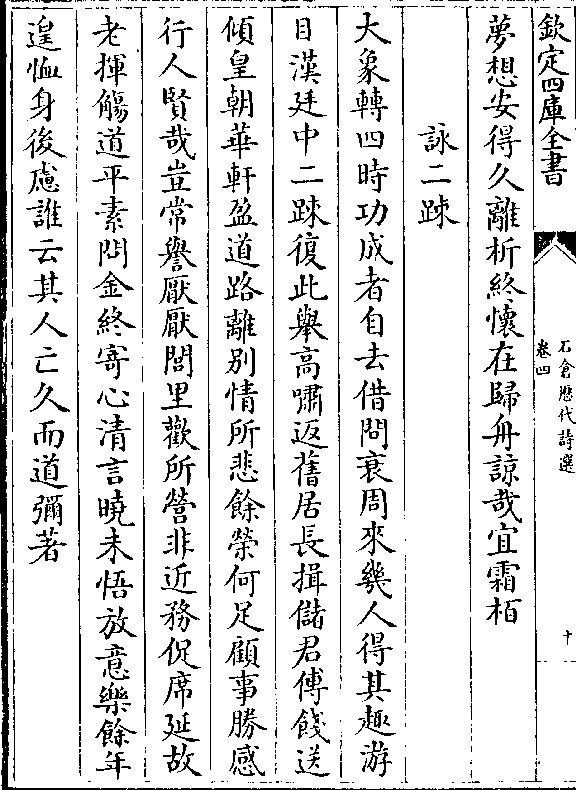 欽定四庫全書
石倉歷代詩選
卷四
十
夢想安得久離析終懷在歸舟諒哉宜霜栢
詠二踈
大象轉四時功成者自去借問衰周來幾人得其趣游
目漢廷中二踈復此舉高嘯返舊居長揖儲君傅餞送
傾皇朝華軒盈道路離別情所悲餘榮何足顧事勝感
行人賢哉豈常譽厭厭閭里歡所營非近務促席延故
老揮觴道平素問金終寄心清言曉未悟放意樂餘年
遑恤身後慮誰云其人亡久而道彌著